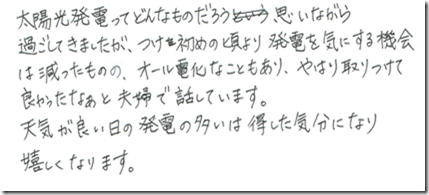 太陽光発電ってどんなものだろう思いながら
過ごしてきましたが、つけ初めの頃より発電を気にする機会
は減ったものの、オール電化なこともあり、やはり取りつけて
良かったなぁと夫婦で話しています。
天気が良い日の発電の多いは得した気分になり
嬉しくなります。